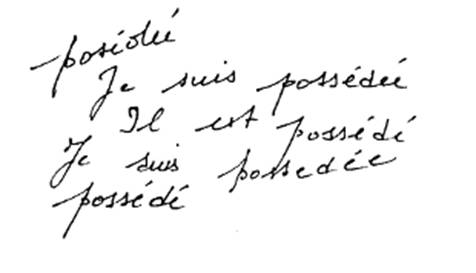 posédée
Je suis possédée
Il est possédé
Je suis possedée
possédé